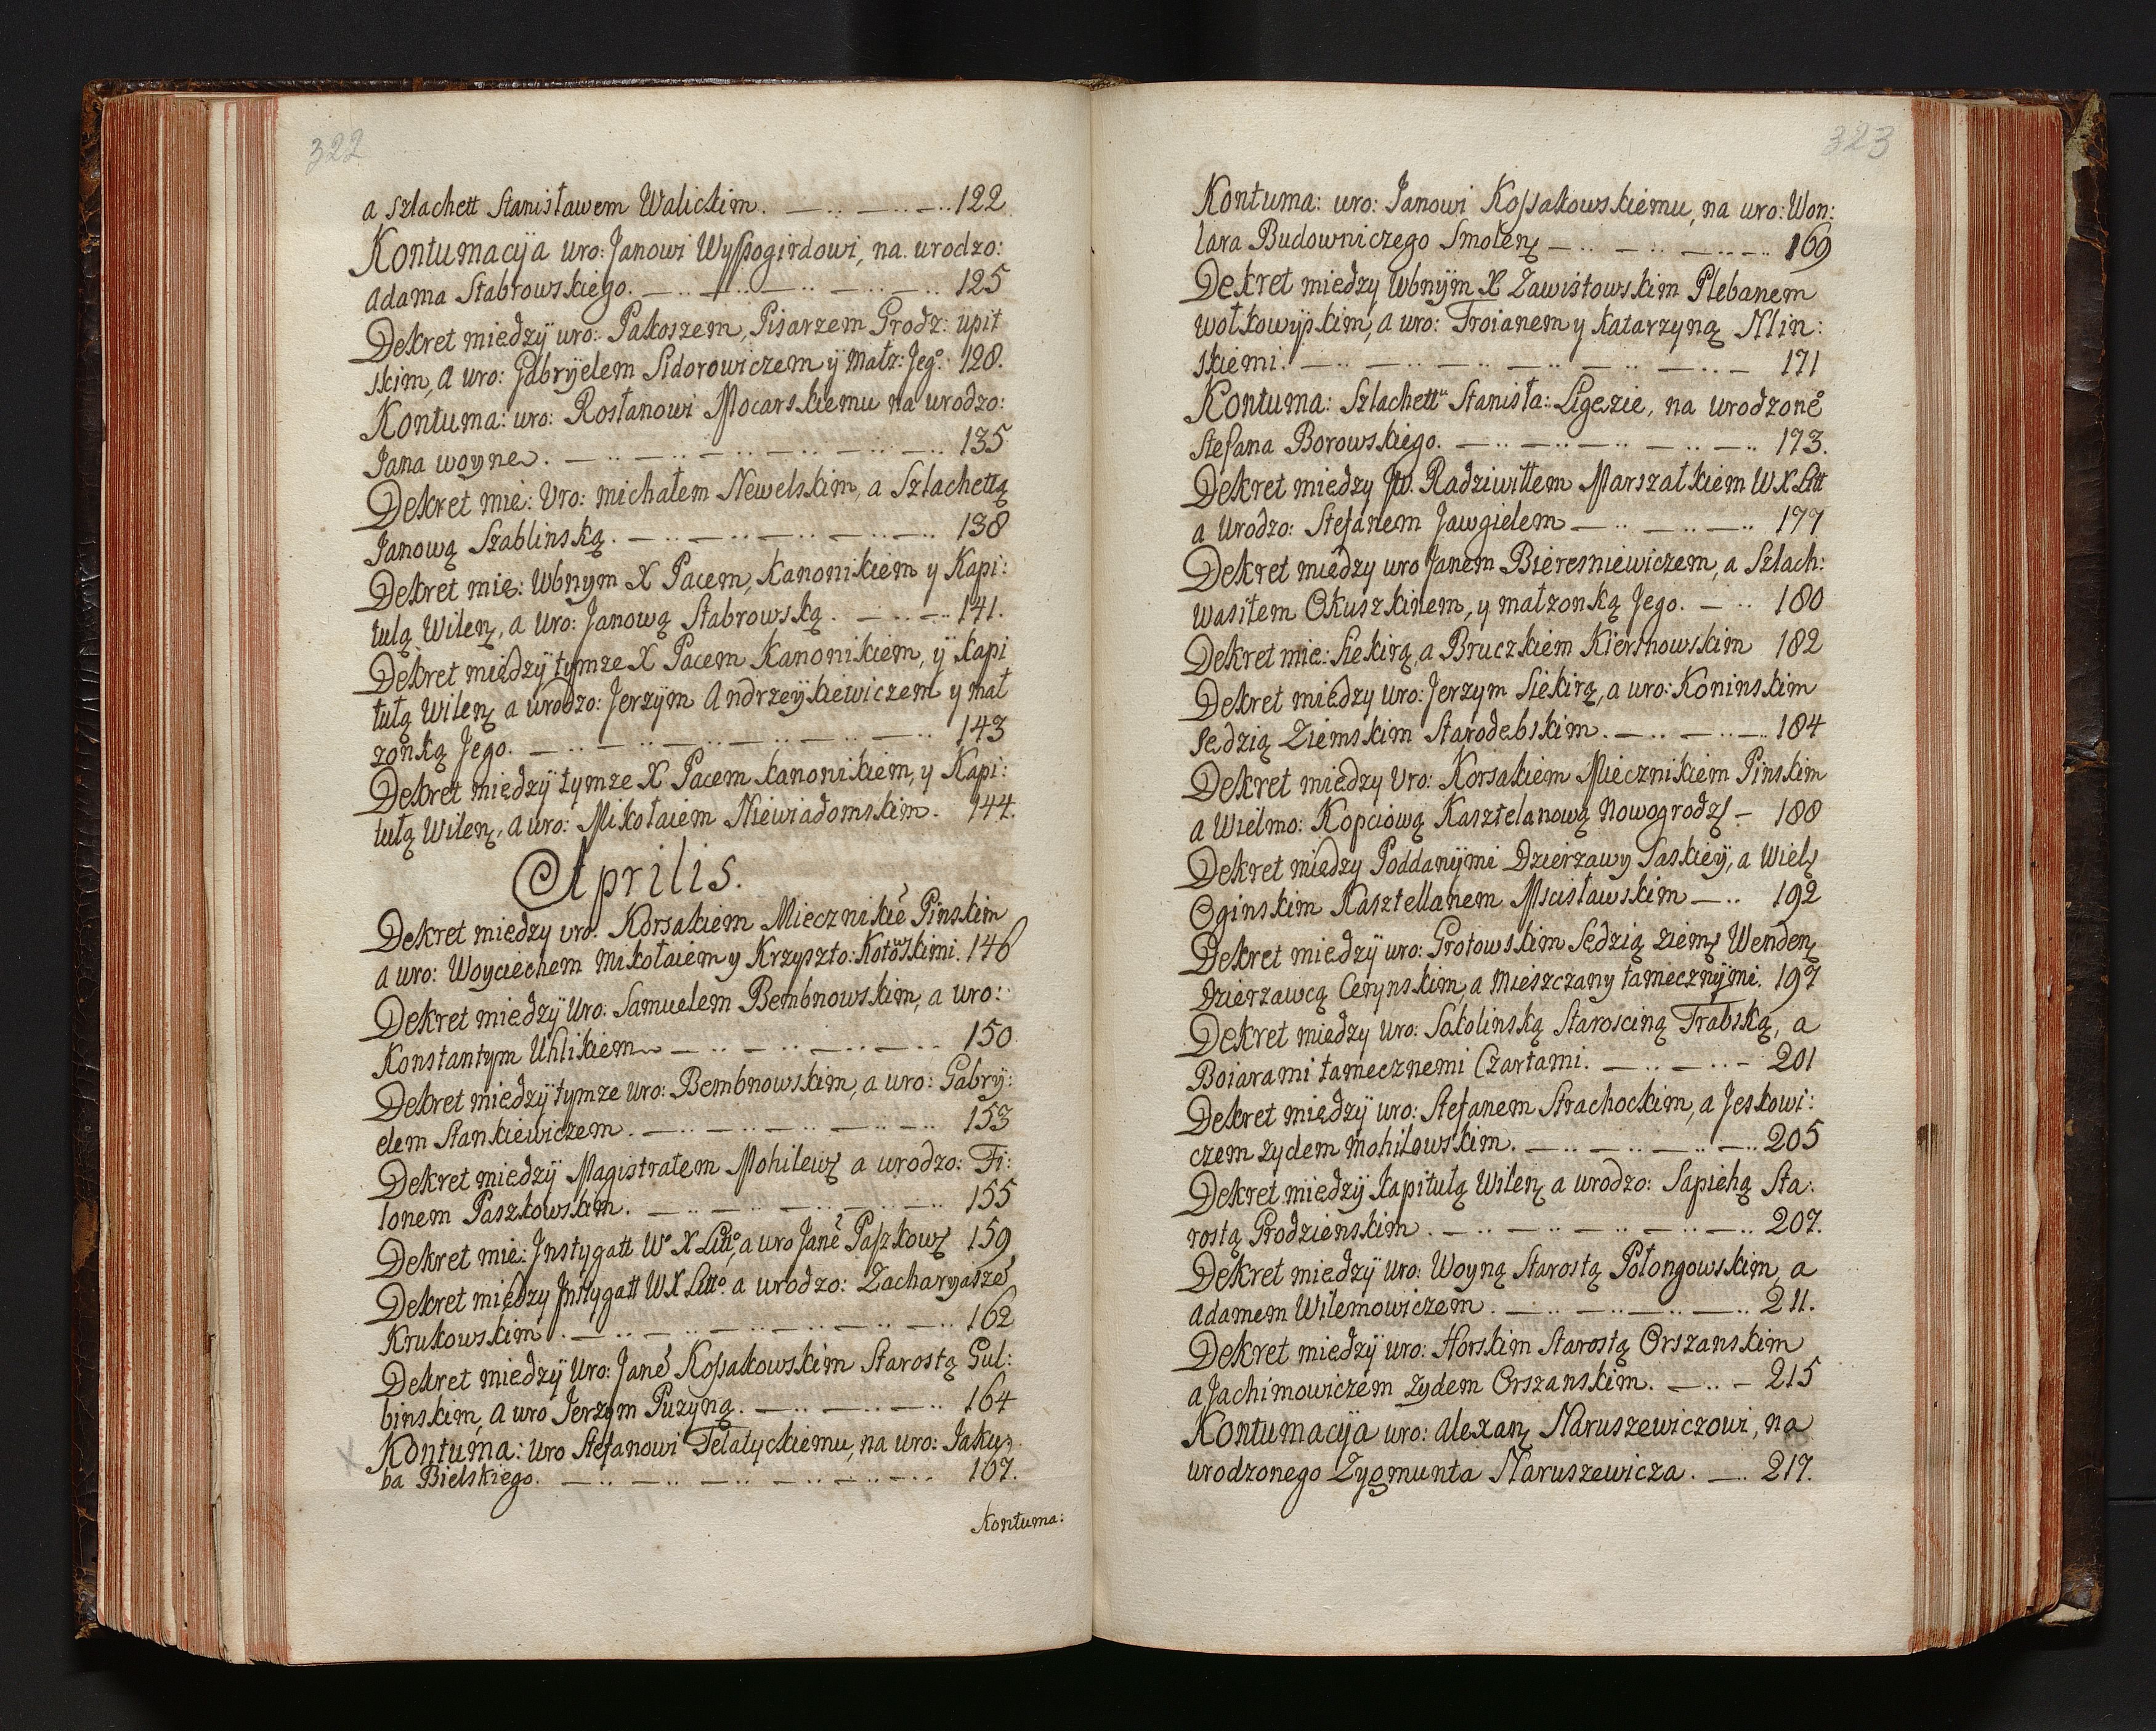 322
a Szlachett Stanisławem Walickim. — .. — .. — .. 122
Kontumacija uro: Janowi Wyssogirdowi, na urodzo:
Adama Stabrowskiego. — .. — .. — .. — .. — .. 125
Dekret miedzÿ uro: Pakoszem, Pisarzem Grodz: upit
skim, a uro: Gabryelem Sidorowiczem ÿ małz: Jeg°. 128.
Kontuma: uro: Rosłanowi Mocarskiemu na urodzo:
Jana woyne. — .. — .. — .. — .. — .. — .. 135
Dekret mie: Uro: michałem Newelskim, a Szlachettą
Janową Szablinską. — .. — .. — .. — .. — .. 138
Dekret mię: Wbnym X Pacem, Kanonikiem y Kapi:
tulą Wilen, a Uro: Janową Stabrowską. — .. — .. 141.
Dekret międzÿ tymze X Pacem Kanonikiem, ÿ Kapi
tułą Wilen, a urodzo: Jerzÿm Andrzeÿkiewiczem y mał
zonką Jego. — .. — .. — .. — .. — .. — 143
Dekret miedzÿ tymze X Pacem kanonikiem, y Kapi:
tułą Wilen, a uro: Mikołaiem Niewiadomskim. 144.
Aprilis.
Dekret miedzy uro: Korsakiem Miecznikiē Pinskim
a uro: Woyciechem Mikołaiem y Krzyszto: Kotowskimi. 146
Dekret miedzÿ Uro: Samuelem Bembnowskim, a uro:
Konstantym Uhlikiem — .. — .. — .. — .. 150
Dekret miedzÿ tymze uro: Bembnowskim, a uro: Gabrÿ:
elem Stankiewiczem. — .. — .. — .. — .. 153
Dekret miedzÿ Magistratem Mohilew a urodzo: Fi:
lonem Paszkowskim. — .. — .. — .. — .. 155
Dekret mie: Instygatt W° X Litt°, a uro Janē Paszkow 159
Dekret miedzy Instygatt W X Litt°. a urodzo: Zacharyaszē
Krukowskim. — .. — .. — .. — .. — .. — .. 162
Dekret miedzÿ Uro: Janē Kossakowskim Starostą Gul:
binskim, a uro Jerzym Puzyną. — .. — .. — .. 164
Kontuma: uro Stefanowi Telatyckiemu, na uro: Jaku:
ba Bielskiego. — .. — .. — .. — .. — .. 167.
Kontuma:
323
Kontuma: uro: Janowi Kossakowskiemu, na uro: Won:
lara Budowniczego Smolen — .. — .. — .. — .. 169
Dekret miedzy Wbnÿm X Zawistowskim Plebanem
wołkowÿskim, a uro: Troianem y Katarzyną Mlin:
skiemi. — .. — .. — .. — .. — .. — .. — 171
Kontuma: Szlachett Stanisła: Ligezie, na urodzone°
Stefana Borowskiego. — .. — .. — .. — .. — .. 173.
Dekret miedzy Jw. Radziwiłłem Marszałkiem W X Litt
a Urodzo: Stefanem Jawgielem — .. — .. — .. 177
Dekret miedzy uro Janem Bieresniewiczem, a Szlach:
Wasilem Okuszkinem, y małzonką Jego. — .. 180
Dekret mie: Siekirą, a Bruczkiem Kiersnowskim 182
Dekret miedzy uro: Jerzym Siekirą, a uro: Koninskim
Sedzią Ziemskim Starodebskim. — .. — .. — .. 184
Dekret miedzy Uro: Korsakiem Miecznikiem Pinskim
a Wielmo: Kopciową Kasztelanową Nowogrodz — 188
Dekret miedzy Poddanÿmi Dzierzawy Saskieÿ, a Wiel
Oginskim Kasztellanem Mscisławskim — .. 192
Dekret miedzÿ uro: Grotowskim Sedzią ziem Wenden
Dzierzawcą Cerynskim, a Mieszczany tamecznÿmi. 197
Dekret miedzy uro: Sokolinską Staroscina Trabską, a
Boiarami tamecznemi Czartami. — .. — .. — 201
Dekret międzÿ uro: Stefanem Strachockim, a Jeskowi:
czem zydem mohilowskim. — .. — .. — .. — .. 205
Dekret miedzÿ Kapitułą Wilen a urodzo: Sapiehą Sta:
rostą Grodzienskim. — .. — .. — .. — .. — .. 207.
Dekret miedzÿ uro: Woyną Starostą Połongowskim, a
Adamem Wilemowiczem. — .. — .. — .. — .. 211.
Dekret miedzÿ uro: Horskim Starostą Orszanskim
a Jachimowiczem zydem Orszanskim. — .. — 215
Kontumacija uro: Alexan Naruszewiczowi, na
urodzonego Zygmunta Naruszewicza. — .. 217.